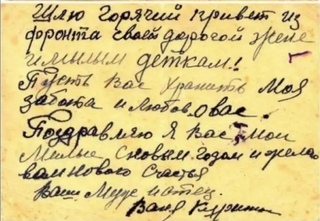 Шлю горячий привет из
фронта своей дорогой жене
и милым деткам!
Пусть вас хранить моя
забота и любов о вас.
Поздравляю я вас мои
милые с новым годом и желаю
вам нового счастья
Ваш муж и отец.
Ваня